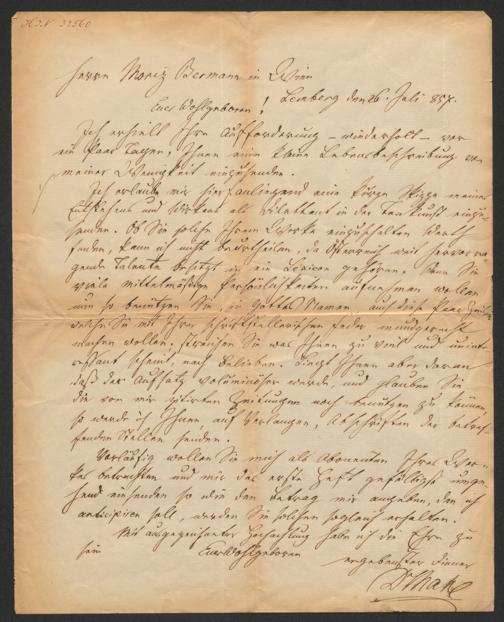 H.I.N. 33560
Herrn Moriz Bermann in Wien
Euer Wohlgeboren! Lemberg den 26. Juli 857.
Ich erhielt Ihre Aufforderung – wiederholt – vor
ein paar Tagen, Ihnen eine kleine Lebensbeschreibung von
meiner Wenigkeit einzusenden.
Ich erlaube mir hier anliegend eine kurze Skizze meines
Entstehens und Wirkens als Dilettant in der Tonkunst einzu-
senden. Ob Sie solche Ihrem Werke einzuschalten werth
finden, kann ich nicht beurtheilen, da Österreich weit hervorra-
gende Talente besitzt die in ein Lexicon gehören. Wenn Sie
viele mittelmäßige Persönlichkeiten aufnehmen wollen
nun so benützen Sie, in Gottes Namen auch diese paar Zeilen
welche Sie mit Ihrer schriftstellerischen Feder mundgerecht
machen wollen. Streichen Sie was Ihnen zu viel und uninte-
ressant scheint, nach Belieben. Liegt Ihnen aber daran
daß der Aufsatz voluminöser werde, und glauben Sie
die von mir zitirten Zeitungen noch benützen zu können,
so werde ich Ihnen, auf Verlangen, Abschriften der betref-
fenden Stellen senden.
Vorläufig wollen Sie mich als Abonenten Ihres Wer-
kes betrachten und mir das erste Heft gefälligst umge-
hend einsenden so wie den Betrag mir angeben, den ich
anticipiren soll, werden Sie solchen sogleich erhalten.
Mit ausgezeichneter Hochachtung habe ich die Ehre zu
sein Euer Wohlgeboren ergebenster Diener